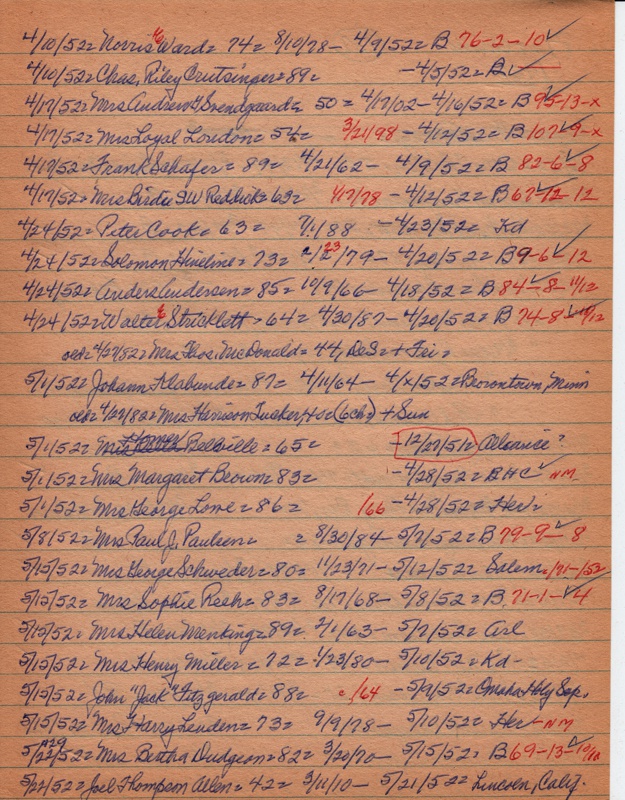 4/10/52= Norris E Ward= 74= 8/10/78- 4/9/52= B 76-2-10✓
4/10/52= Chas, Riley Crutsinger= 89= -4/5/52= B✓
4/17/52= Mrs Andrew G Svendgaard= 50= 4/17/02-4/16/52= B 95-13-x
4/17/52= Mrs Loyal Loudon= 54= 3/21/98 -4/12/52= B 107✓9-x
4/17/52= Frank Schafer= 89= 4/21/62- 4/9/52= B 82-6✓8
4/17/52= Mrs Birdie SW Redlick= 69= 4/7/78 -4/12/52= B 67✓12-12
4/24/52= Peter Cook= 63= 7/1/88 -4/23/52= Kd
4/24/52= Solomon Hineline= 73= 2/23/79- 4/20/52= B 9-6✓12
4/24/52= Anders Andersen= 85= 10/9/66- 4/18/52= B 84✓8-11/12
4/24/52= Walter E Stricklett= 64= 4/30/87- 4/20/52= B 74-8✓
4/27/82= Mrs Thos. McDonald= 44, DeS= + Fri=
5/1/52= Johann Klabunde= 87= 4/11/64- 4/x/52= Browntown, Minn
4/27/82= Mrs Harrison Tucker, (6ch) + Sun
5/1/52= Mrs Homer Bellville= 65= -12/27/51= Alliance?
5/1/52= Mrs Margaret Brown= 83= -4/28/52= BHC✓ NM
5/1/52= Mrs George Lowe= 86= /66 -4/28/52= Her=
5/8/52= Mrs Paul J. Paulsen= = 8/30/84- 5/7/52= B 79-9✓8
5/15/52= Mrs George Schweder= 80= 11/23/71- 5/12/52= Salem =/71-/52
5/15/52= Mrs Sophie Resh= 83= 8/17/68- 5/8/52= B. 71-1-✓4
5/15/52= Mrs Helen Menking= 89= 2/1/63- 5/7/52= Arl
5/15/52= Mrs Henry Miller= 72= 1/23/80- 5/10/52= Kd-
5/15/52= John "Jack" Fitzgerald= 88= c/64 -5/9/52= Omaha Holy Sep.
5/15/52= Mrs Harry Lenden= 73= 9/9/78- 5/10/52= Her- NM
5/22/52= Mrs Bertha Dudgeon= 82= 3/20/70- 5/15/52= B 69-13✓
5/22/52= Joel Thompson Allen= 42= 3/11/10- 5/21/52= Lincoln, Calif.